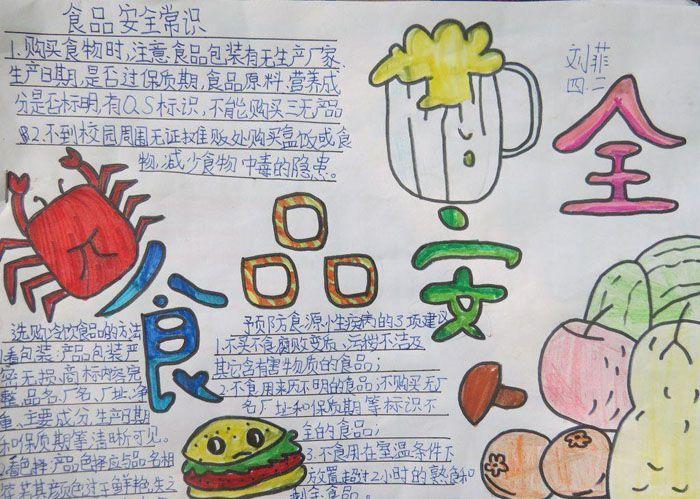 食品安全常识
1.购买食物时,注意食品包装有无生产厂家、
生产日期,是否过保质期,食品原料、营养成
分是否标明,有QS标识,不能购买三无产品
2.不到校园周围无证摊贩处购买盒饭或食
物,减少食物中毒的隐患。
刘菲
四.二
食品安全
选购冷饮食品的方法
看包装:产品包装严
密无损,商标内容完
整,品名、厂名、厂址、净
重、主要成分、生产日期
和保质期等清晰可见。
看色择:产品色择应与品名相
其颜色过于鲜艳
预防食源小性疾病的3项建议
1.不买不食腐败变质、污秽不洁及
其它含有害物质的食品;
2.不食用来历不明的食品;不购买无厂
名厂址和保质期等标识不
全的食品;
3.不食用在室温条件下
放置超过2小时的熟食和
剩余食品。